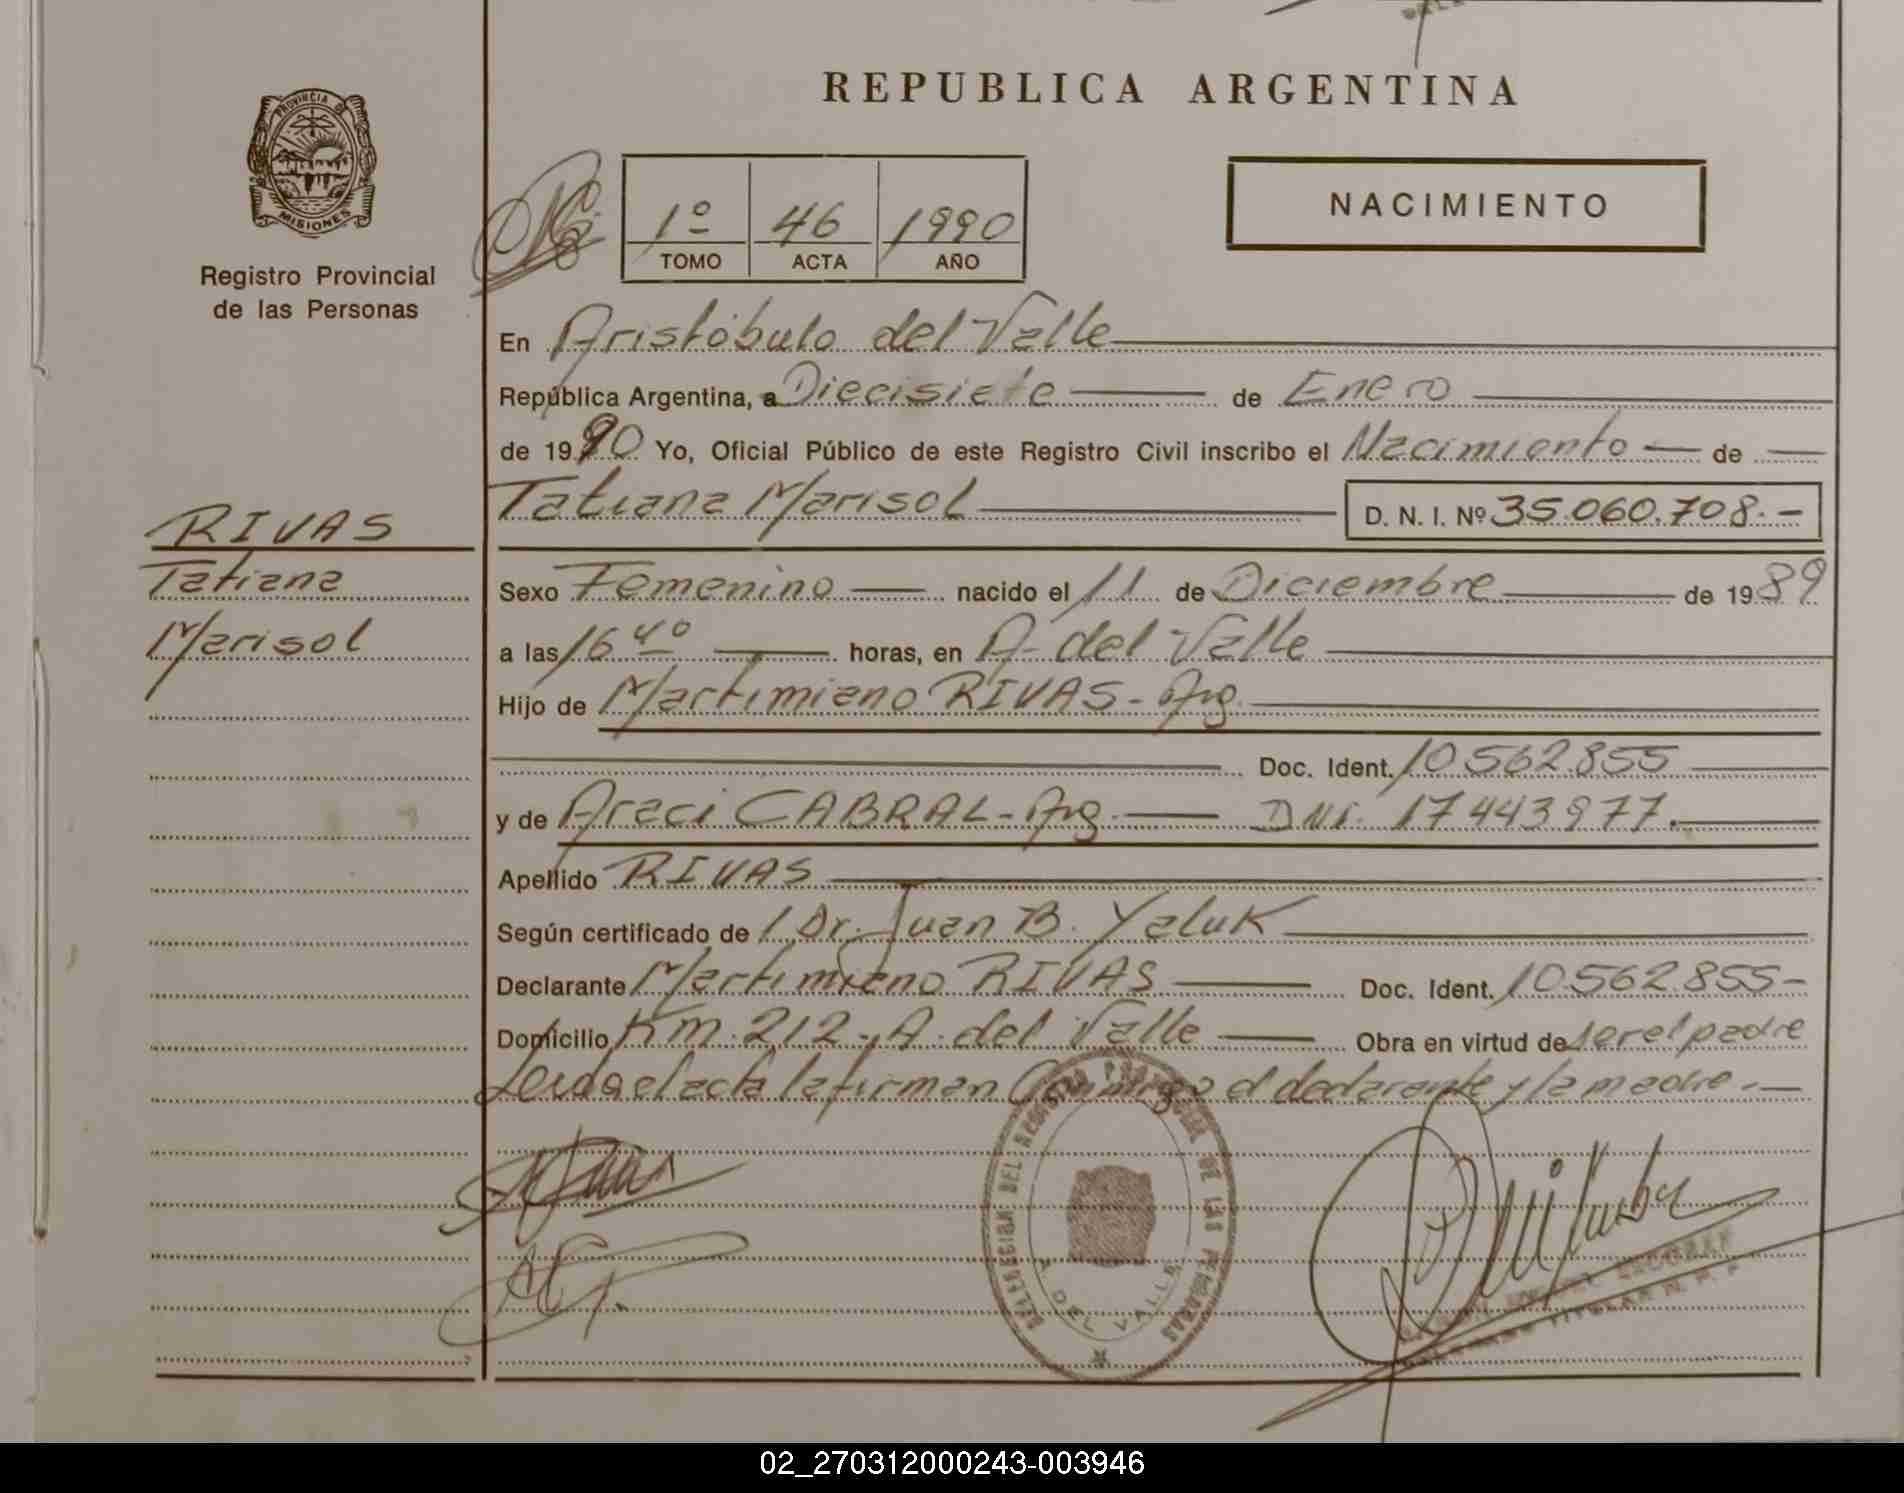 REPUBLICA ARGENTINA
PROVINCIA DE
MISIONES
Registro Provincial
de las Personas
1º 46 1990
TOMO ACTA AÑO
NACIMIENTO
En Aristóbulo del Valle
República Argentina, a Diecisiete de Enero
de 1990 Yo, Oficial Público de este Registro Civil inscribo el Nacimiento de
RIVAS
Tatiana
Marisol
Tatiana Marisol D. N. I. Nº 35.060.708.-
Sexo Femenino nacido el 11 de Diciembre de 1989
a las 16 40 horas, en A. del Valle
Hijo de Martimiano RIVAS - Arg.
Doc. Ident. 10562855
y de Araci CABRAL - Arg. DNI. 17443977.
Apellido RIVAS
Según certificado de 1 Dr. Juan B. Yaluk
Declarante Martimiano RIVAS Doc. Ident. 10562855-
Domicilio Km. 212 - A. del Valle Obra en virtud de ser el padre
Leida el acta la firman Conmigo el declarante y la madre.-
DELEGACION DEL REGISTRO PROVINCIAL DE LAS PERSONAS
A. DEL VALLE
ESCOBAR
TITULAR R. P. P.
02_270312000243-003946